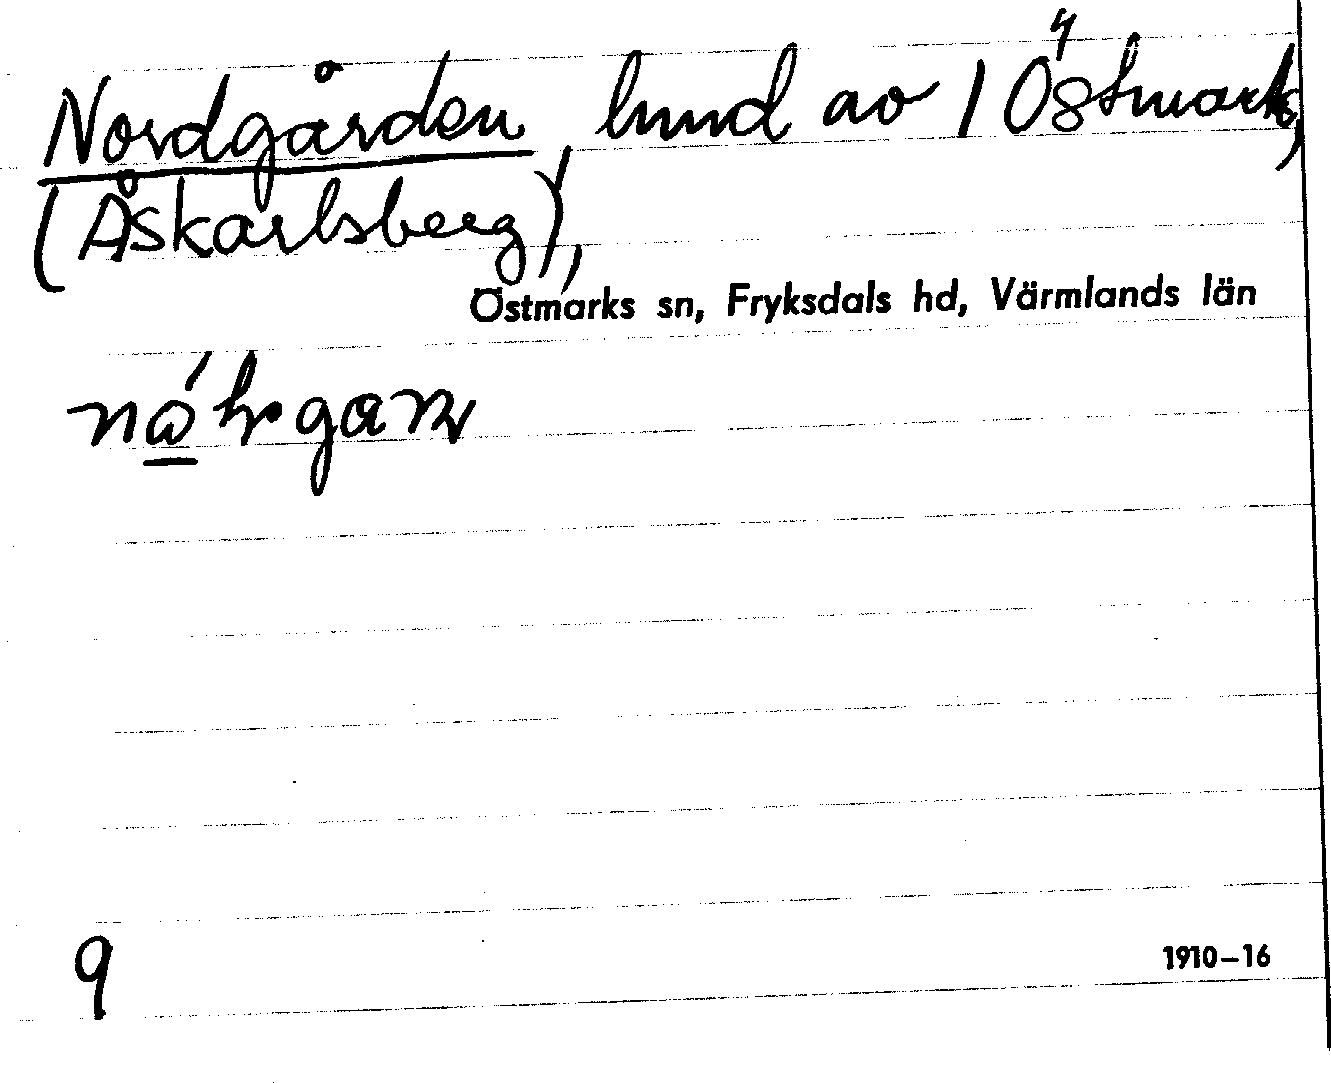 Nordgården, hmd av 1 Östmark,
(Åskarlsberg),
Östmarks sn, Fryksdals hd, Värmlands län
9
1910–16